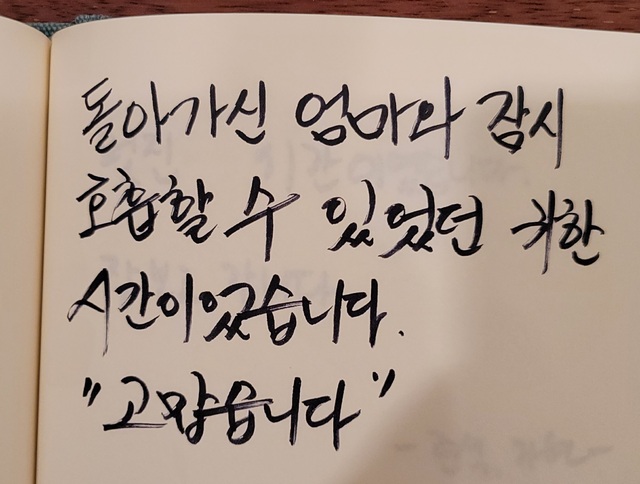 돌아가신 엄마와 잠시
호흡할 수 있었던 귀한
시간이었습니다.
"고맙습니다"